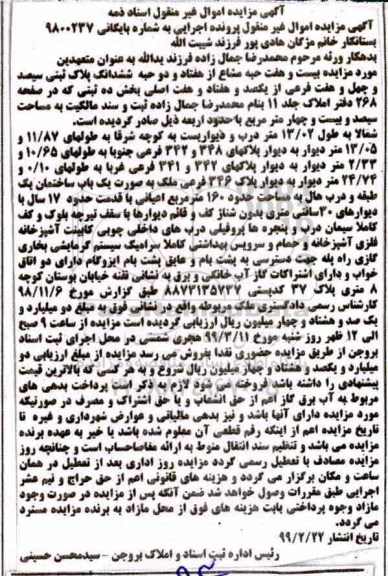 آگهی مزایده اموال غیر منقول اسناد ذمه
آگهی مزایده اموال غیر منقول پرونده اجرایی به شماره بایگانی ۹۸۰۰۲۳۷
بستانکار خانم مژگان هادی پور فرزند شیبت الله
بدهکار ورثه مرحوم محمدرضا جمال زاده فرزند یدالله به عنوان متعهدین
مورد مزایده بیست و هفت حبه مشاع از هفتاد و دو حبه ششدانگ پلاک ثبتی سیصد
و چهل و هفت فرعی از یکصد و هفتاد و هفت اصلی بخش ده ثبتی که در صفحه
۲۶۸ دفتر املاک جلد ۱۱ بنام محمدرضا جمال زاده ثبت و سند مالکیت به مساحت
سیصد و بیست و چهار متر مربع باحدود اربعه ذیل صادر گردیده است.
شمالا به طول ۱۳/۰۲ متر درب و دیواریست به کوچه شرقا به طولهای ۱۱/۸۷ و
۱۳/۰۵ متر دیوار به دیوار پلاکهای ۳۴۸ و ۳۴۲ فرعی جنوبا به طولهای ۱۰/۶۵ و
۲/۳۳ متر دیوار به دیوار پلاکهای ۳۴۲ و ۳۴۱ فرعی غربا به طولهای ۰/۱۰ و
۲۴/۷۴ متر دیوار به دیوار پلاک ۳۴۶ فرعی ملک به صورت یک باب ساختمان یک
طبقه و درب هال به مساحت حدود ۱۶۰ مترمربع اعیانی با قدمت حدود ۱۷ سال با
دیوارهای ۳۰سانتی متری بدون شناژ کف و قائم دیوارها با سقف تیرچه بلوک و کف
کاملا سیمان درب و پنجره ها پروفیلی درب های داخلی چوبی کابینت آشپزخانه
فلزی آشپزخانه و حمام و سرویس بهداشتی کاملا سرامیک سیستم گرمایشی بخاری
گازی راه پله جهت دسترسی به پشت بام و عایق پشت بام ایزوگام دارای دو اتاق
خواب و دارای اشتراکات گاز آب خانگی و برق به نشانی نقنه خیابان بوستان کوچه
۸ متری پلاک ۳۷ کدپستی ۸۸۷۳۱۳۵۷۳۷ طبق گزارش مورخ ۹۸/۱۱/۶
کارشناس رسمی دادگستری ملک مربوطه واقع در نشانی فوق به مبلغ دو میلیارد و
یک صد و هشتاد و چهار میلیون ریال ارزیابی گردیده است مزایده از ساعت ۹ صبح
الی ۱۲ ظهر روز شنبه مورخ ۹۹/۳/۱۱ هجری شمسی در محل اجرای ثبت اسناد
بروجن از طریق مزایده حضوری نقدا بفروش می رسد مزایده از مبلغ ارزیابی دو
میلیارد و یکصد و هشتاد و چهار میلیون ریال شروع و به هر کسی که بالاترین قیمت
پیشنهادی را داشته باشد فروخته می شود لازم به ذکر است پرداخت بدهی های
مربوط به آب برق گاز اعم از حق انشعاب و یا حق اشتراک و مصرف در صورتیکه
مورد مزایده دارای آنها باشد و نیز بدهی مالیاتی و عوارض شهرداری و غیره تا
تاریخ مزایده اعم از اینکه رقم قطعی آن معلوم شده باشد یا خیر به عهده برنده
مزایده می باشد و تنظیم سند انتقال منوط به ارائه مفاصاحساب است و چنانچه روز
مزایده مصادف با تعطیل رسمی گردد مزایده روز اداری بعد از تعطیل در همان
ساعت و مکان برگزار می گردد و هزینه های قانونی اعم از حق حراج و نیم عشر
اجرایی طبق مقررات وصول خواهد شد ضمن آنکه پس از مزایده در صورت وجود
مازاد وجوه پرداختی بابت هزینه های فوق از محل مازاد به برنده مزایده مسترد
می گردد.
تاریخ انتشار ۹۹/۲/۲۷
رئیس اداره ثبت اسناد و املاک بروجن - سیدمحسن حسینی